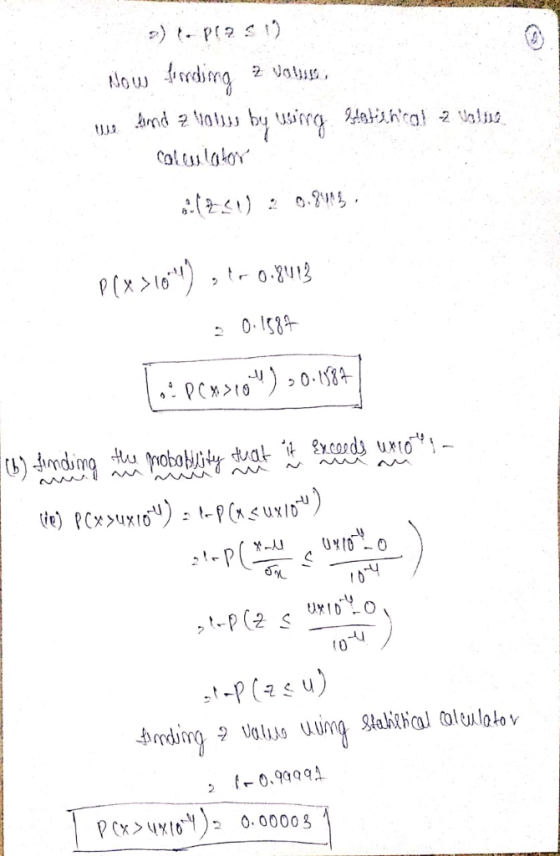 ⇒) 1-P(Z ≤ 1)
Now finding z values,
we find z values by using Statistical z value
calculator
∴(Z≤1) = 0.8413.
P(X>10⁻⁴) = 1-0.8413
= 0.1587
∴ P(X>10⁻⁴) = 0.1587
(b) finding the probability that it exceeds 4x10⁻⁴ :-
(ie) P(X>4x10⁻⁴) = 1-P(X≤4x10⁻⁴)
=1-P( x-μ/σx ≤ 4x10⁻⁴-0/10⁻⁴ )
=1-P(Z ≤ 4x10⁻⁴-0/10⁻⁴ )
=1-P(Z≤4)
finding z values using Statistical calculator
= 1-0.99991
P(X>4x10⁻⁴) = 0.00003